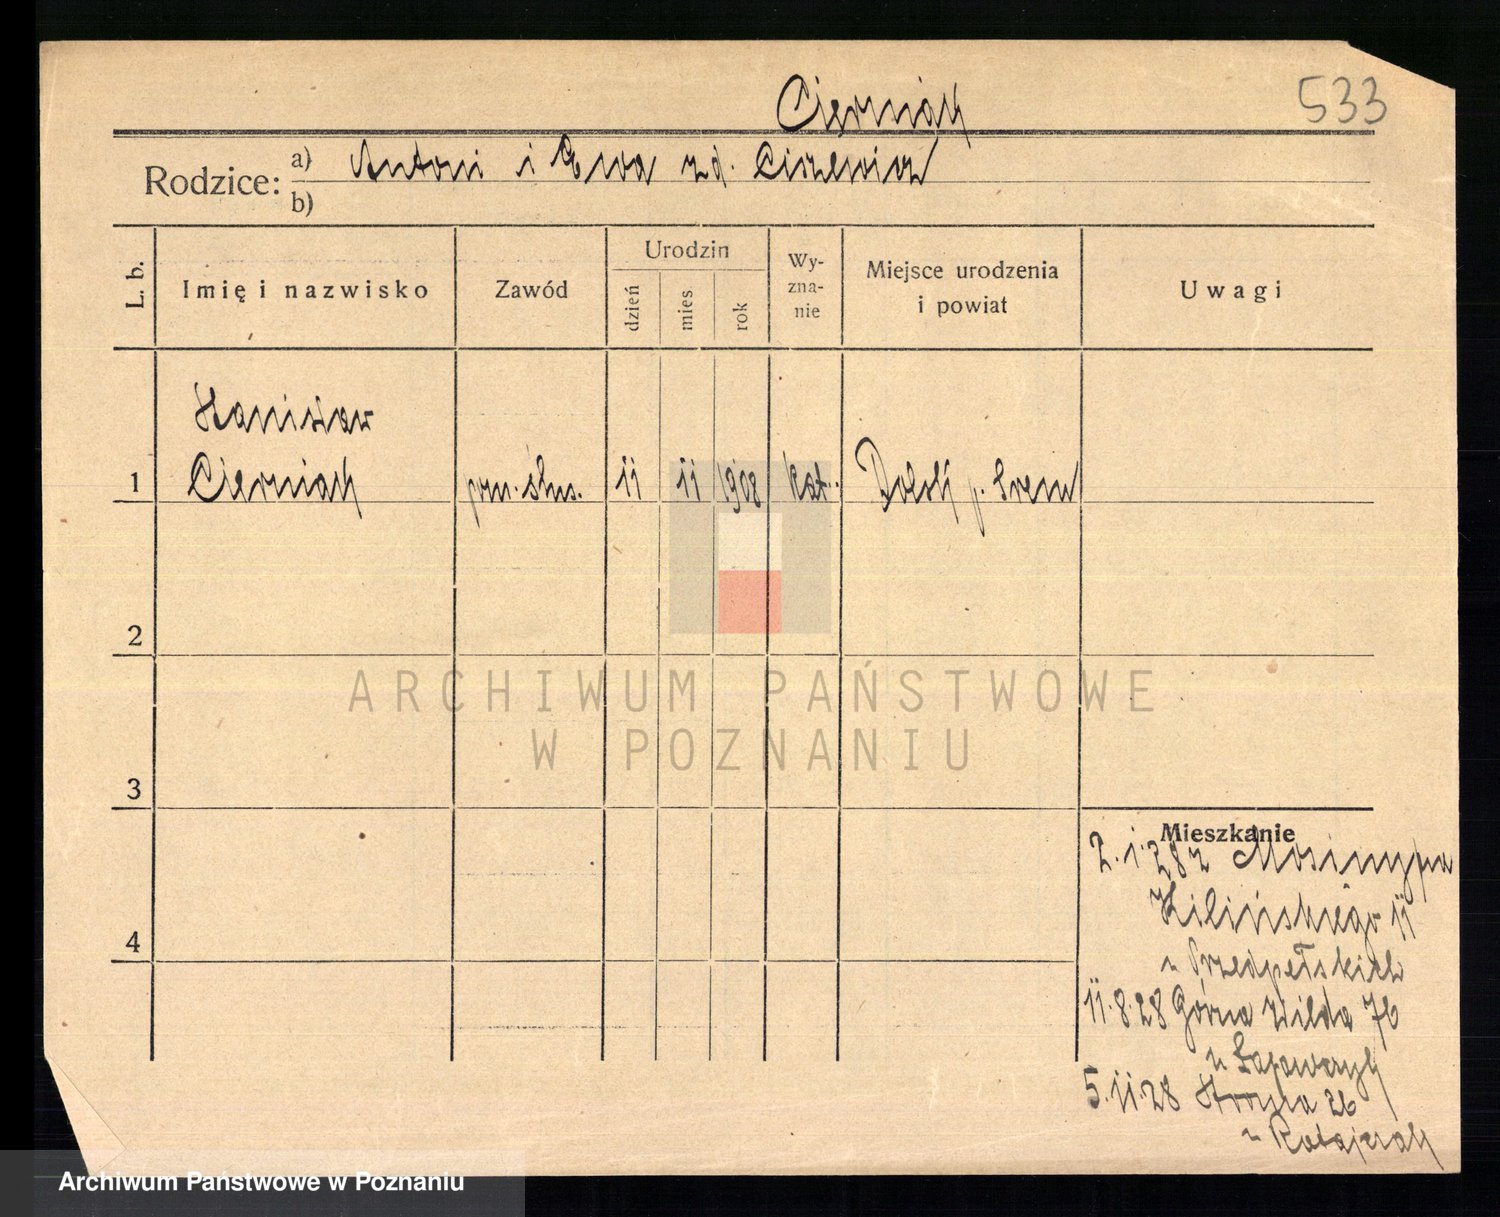 Cierniak
533
Rodzice:
a) Antoni i Ewa zd. Ciszewicz
b)
L. b.
Imię i nazwisko
Zawód
Urodzin
dzień
mies.
rok
Wy-
zna-
nie
Miejsce urodzenia
i powiat
Uwagi
Stanisław
1 Cierniak pom. ślus. 11 11 1908 kat. Dolsk p. Śrem
2
ARCHIWUM PAŃSTWOWE
W POZNANIU
3
Mieszkanie
2.1.28 z Mosiny pa
Kilińskiego 11
4
u Przedpełskich
11.8.28 Górna Wilda 76
u
5.11.28 Strzma 26
u Ratajczak
Archiwum Państwowe w Poznaniu